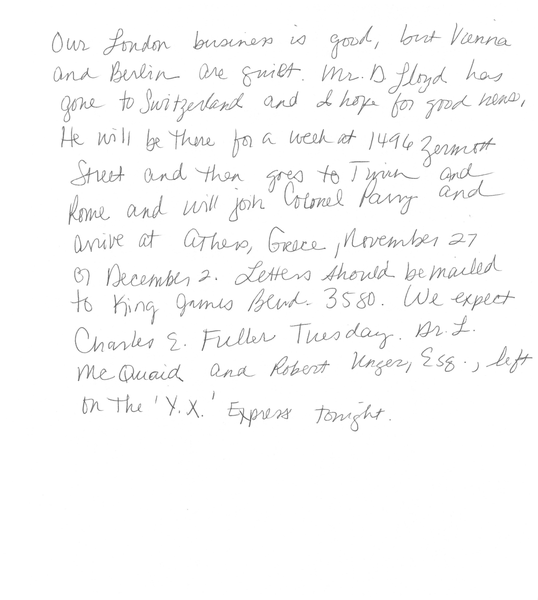 Our London business is good, but Vienna
and Berlin are quiet. Mr. D. Lloyd has
gone to Switzerland and I hope for good news,
He will be there for a week at 1496 Zermott
Street and then goes to Turin and
Rome and will join Colonel Parry and
arrive at Athens, Greece, November 27
or December 2. Letters should be mailed
to King James Blvd. 3580. We expect
Charles E. Fuller Tuesday. Dr. L.
McQuaid and Robert Unger, Esq., left
on the 'Y.X.' Express tonight.